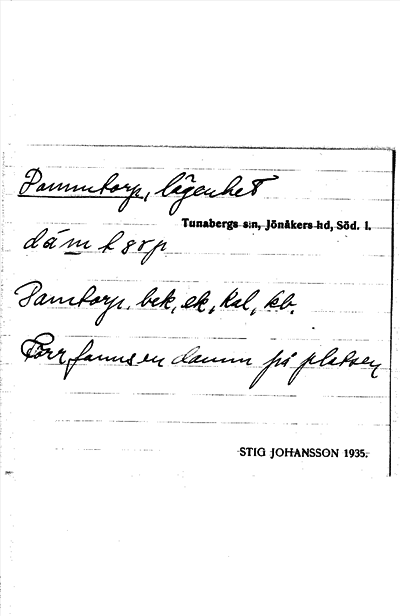 Dammtorp, lägenhet
Tunabergs s:n, Jönåkers hd, Söd. l.
dám torp
Damtorp. bek, ek, kal, kb.
Förr fanns en damm på platsen
STIG JOHANSSON 1935.